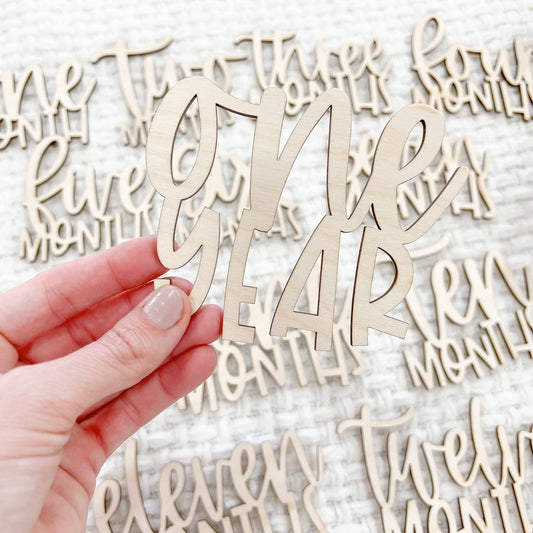 one
MONTH
two
MONTHS
three
MONTHS
four
MONTHS
five
MONTHS
one
YEAR
ten
MONTHS
eleven
MONTHS
twelve
MONTHS